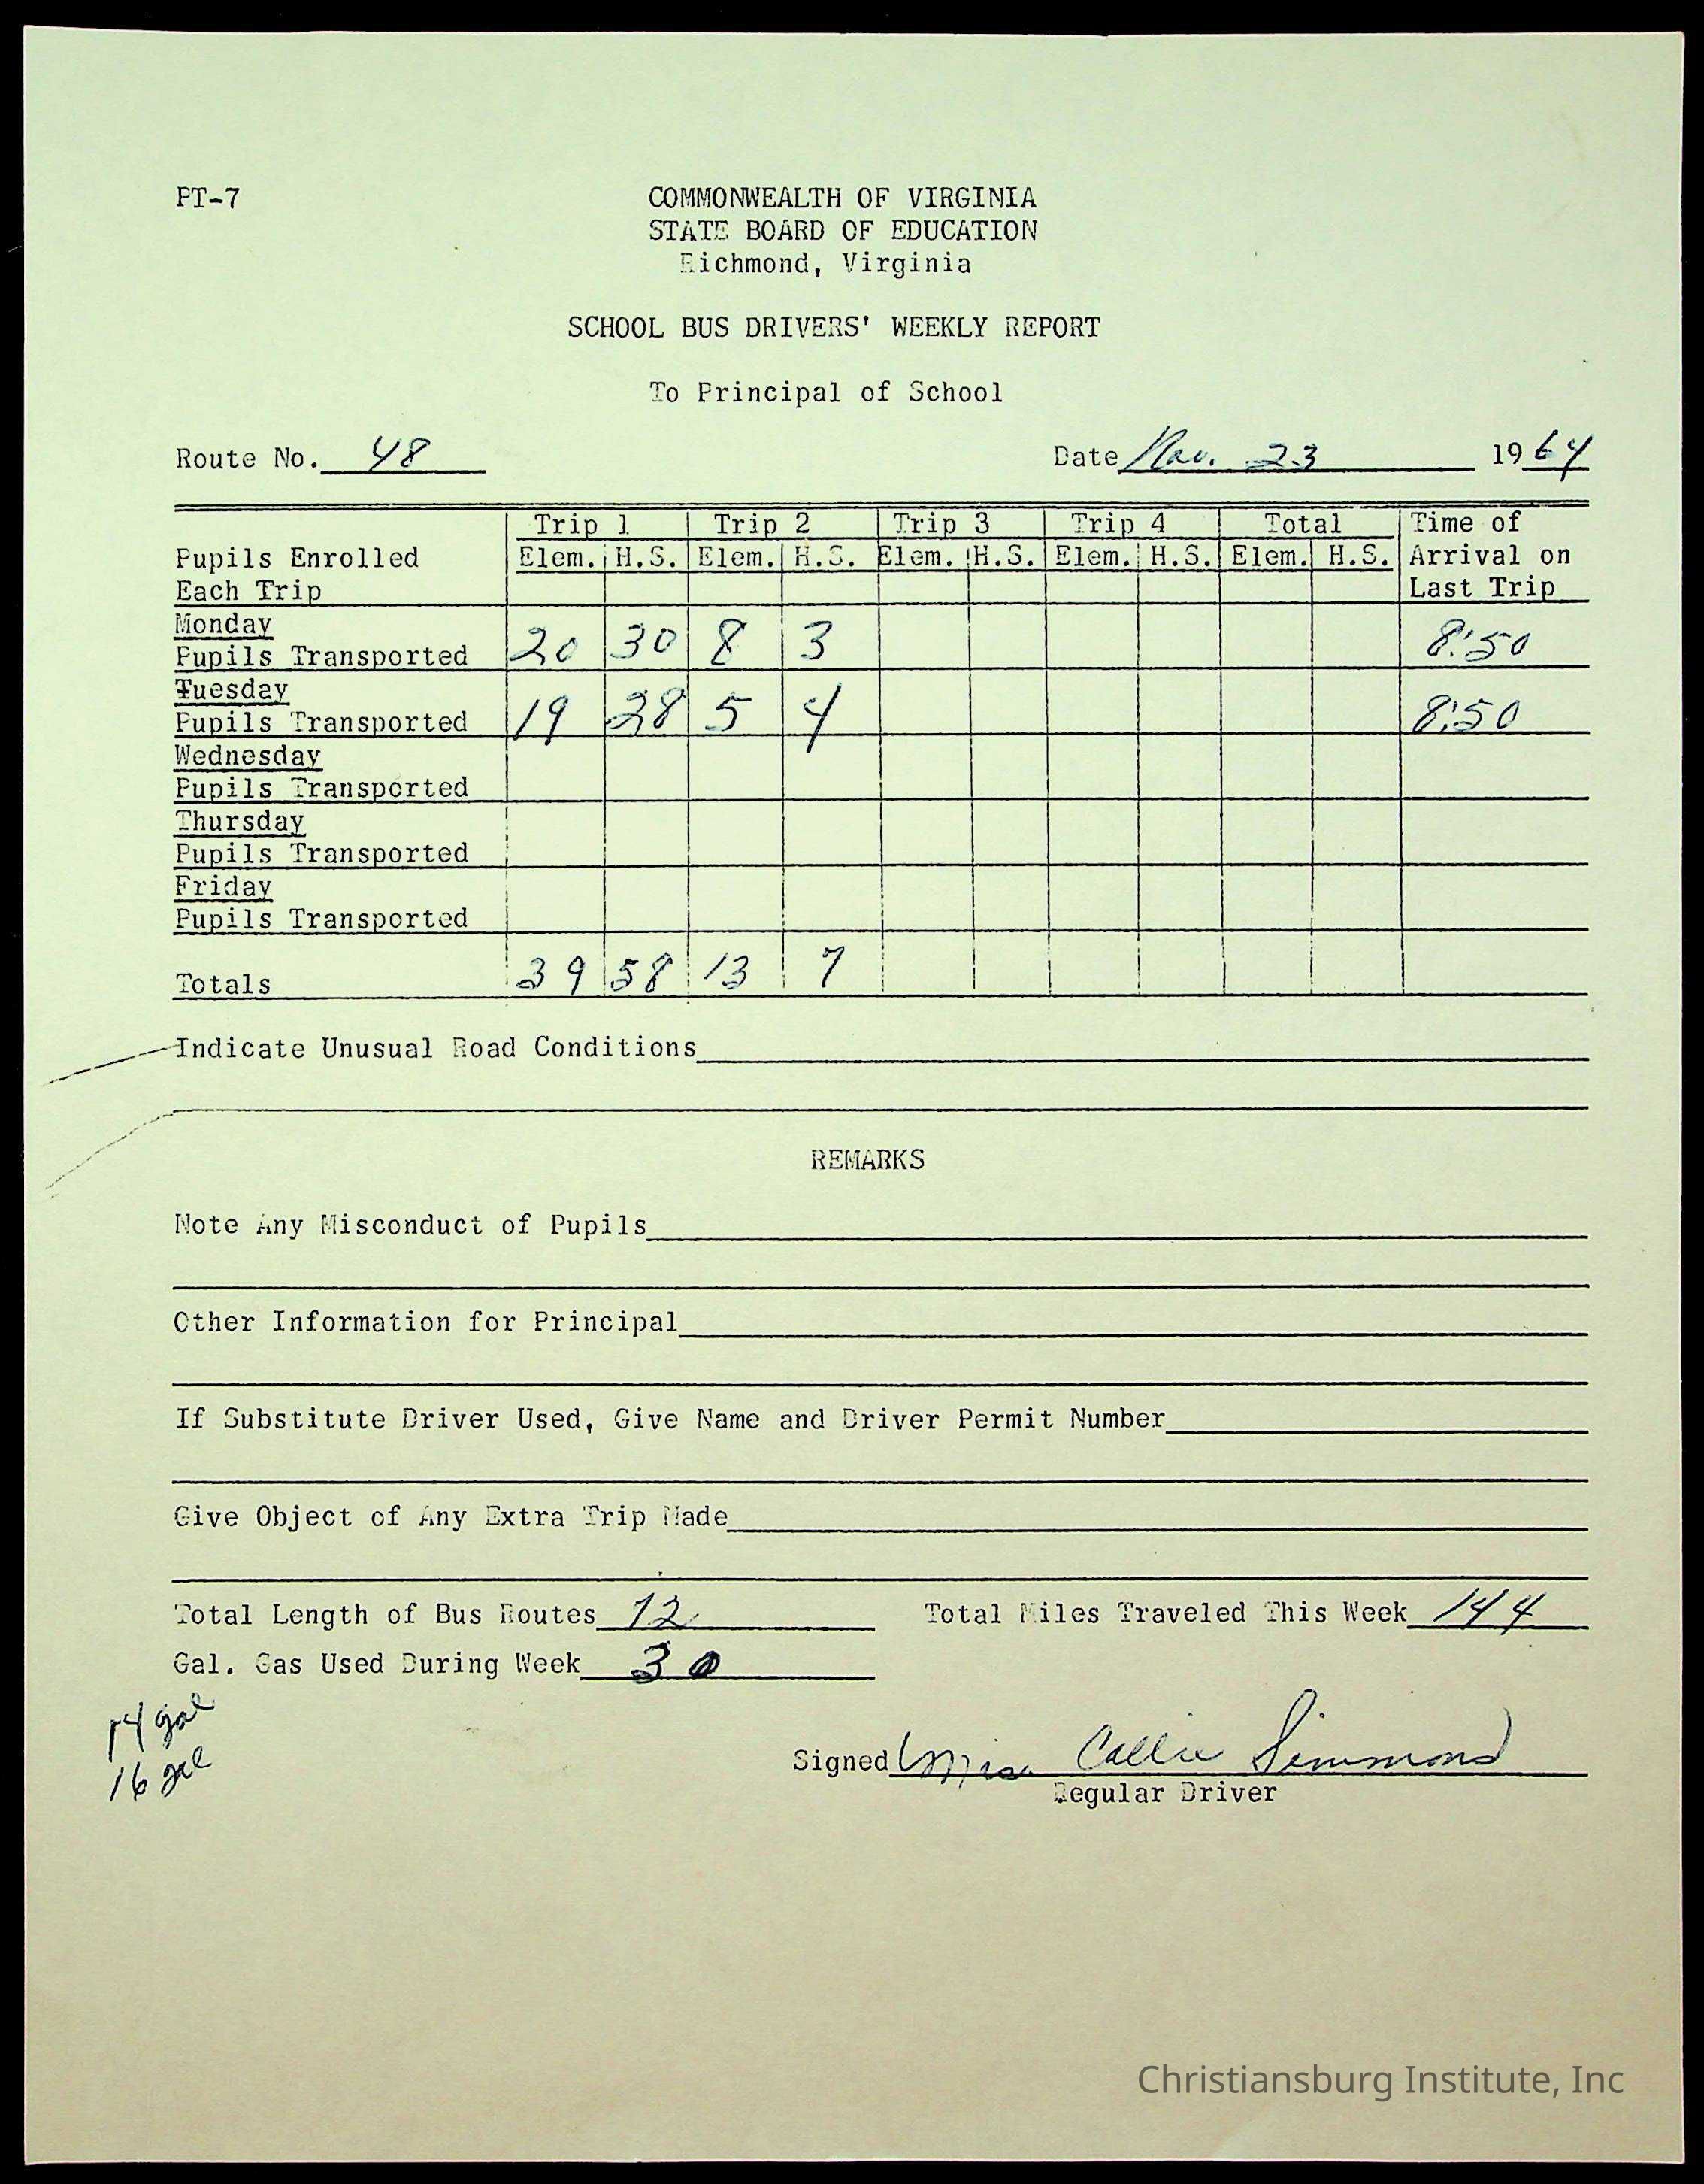 PT-7
COMMONWEALTH OF VIRGINIA
STATE BOARD OF EDUCATION
Richmond, Virginia
SCHOOL BUS DRIVERS' WEEKLY REPORT
To Principal of School
Route No. 48 Date Nov. 23 1964
Trip 1 Trip 2 Trip 3 Trip 4 Total Time of
Pupils Enrolled Elem. H.S. Elem. H.S. Elem. H.S. Elem. H.S. Elem. H.S. Arrival on
Each Trip Last Trip
Monday
Pupils Transported 20 30 8 3 8:50
Tuesday
Pupils Transported 19 28 5 4 8:50
Wednesday
Pupils Transported
Thursday
Pupils Transported
Friday
Pupils Transported
Totals 39 58 13 7
Indicate Unusual Road Conditions
REMARKS
Note Any Misconduct of Pupils
Other Information for Principal
If Substitute Driver Used, Give Name and Driver Permit Number
Give Object of Any Extra Trip Made
Total Length of Bus Routes 12 Total Miles Traveled This Week 144
Gal. Gas Used During Week 30
14 gal
16 gal
Signed Mrs. Callie Simmons
Regular Driver
Christiansburg Institute, Inc